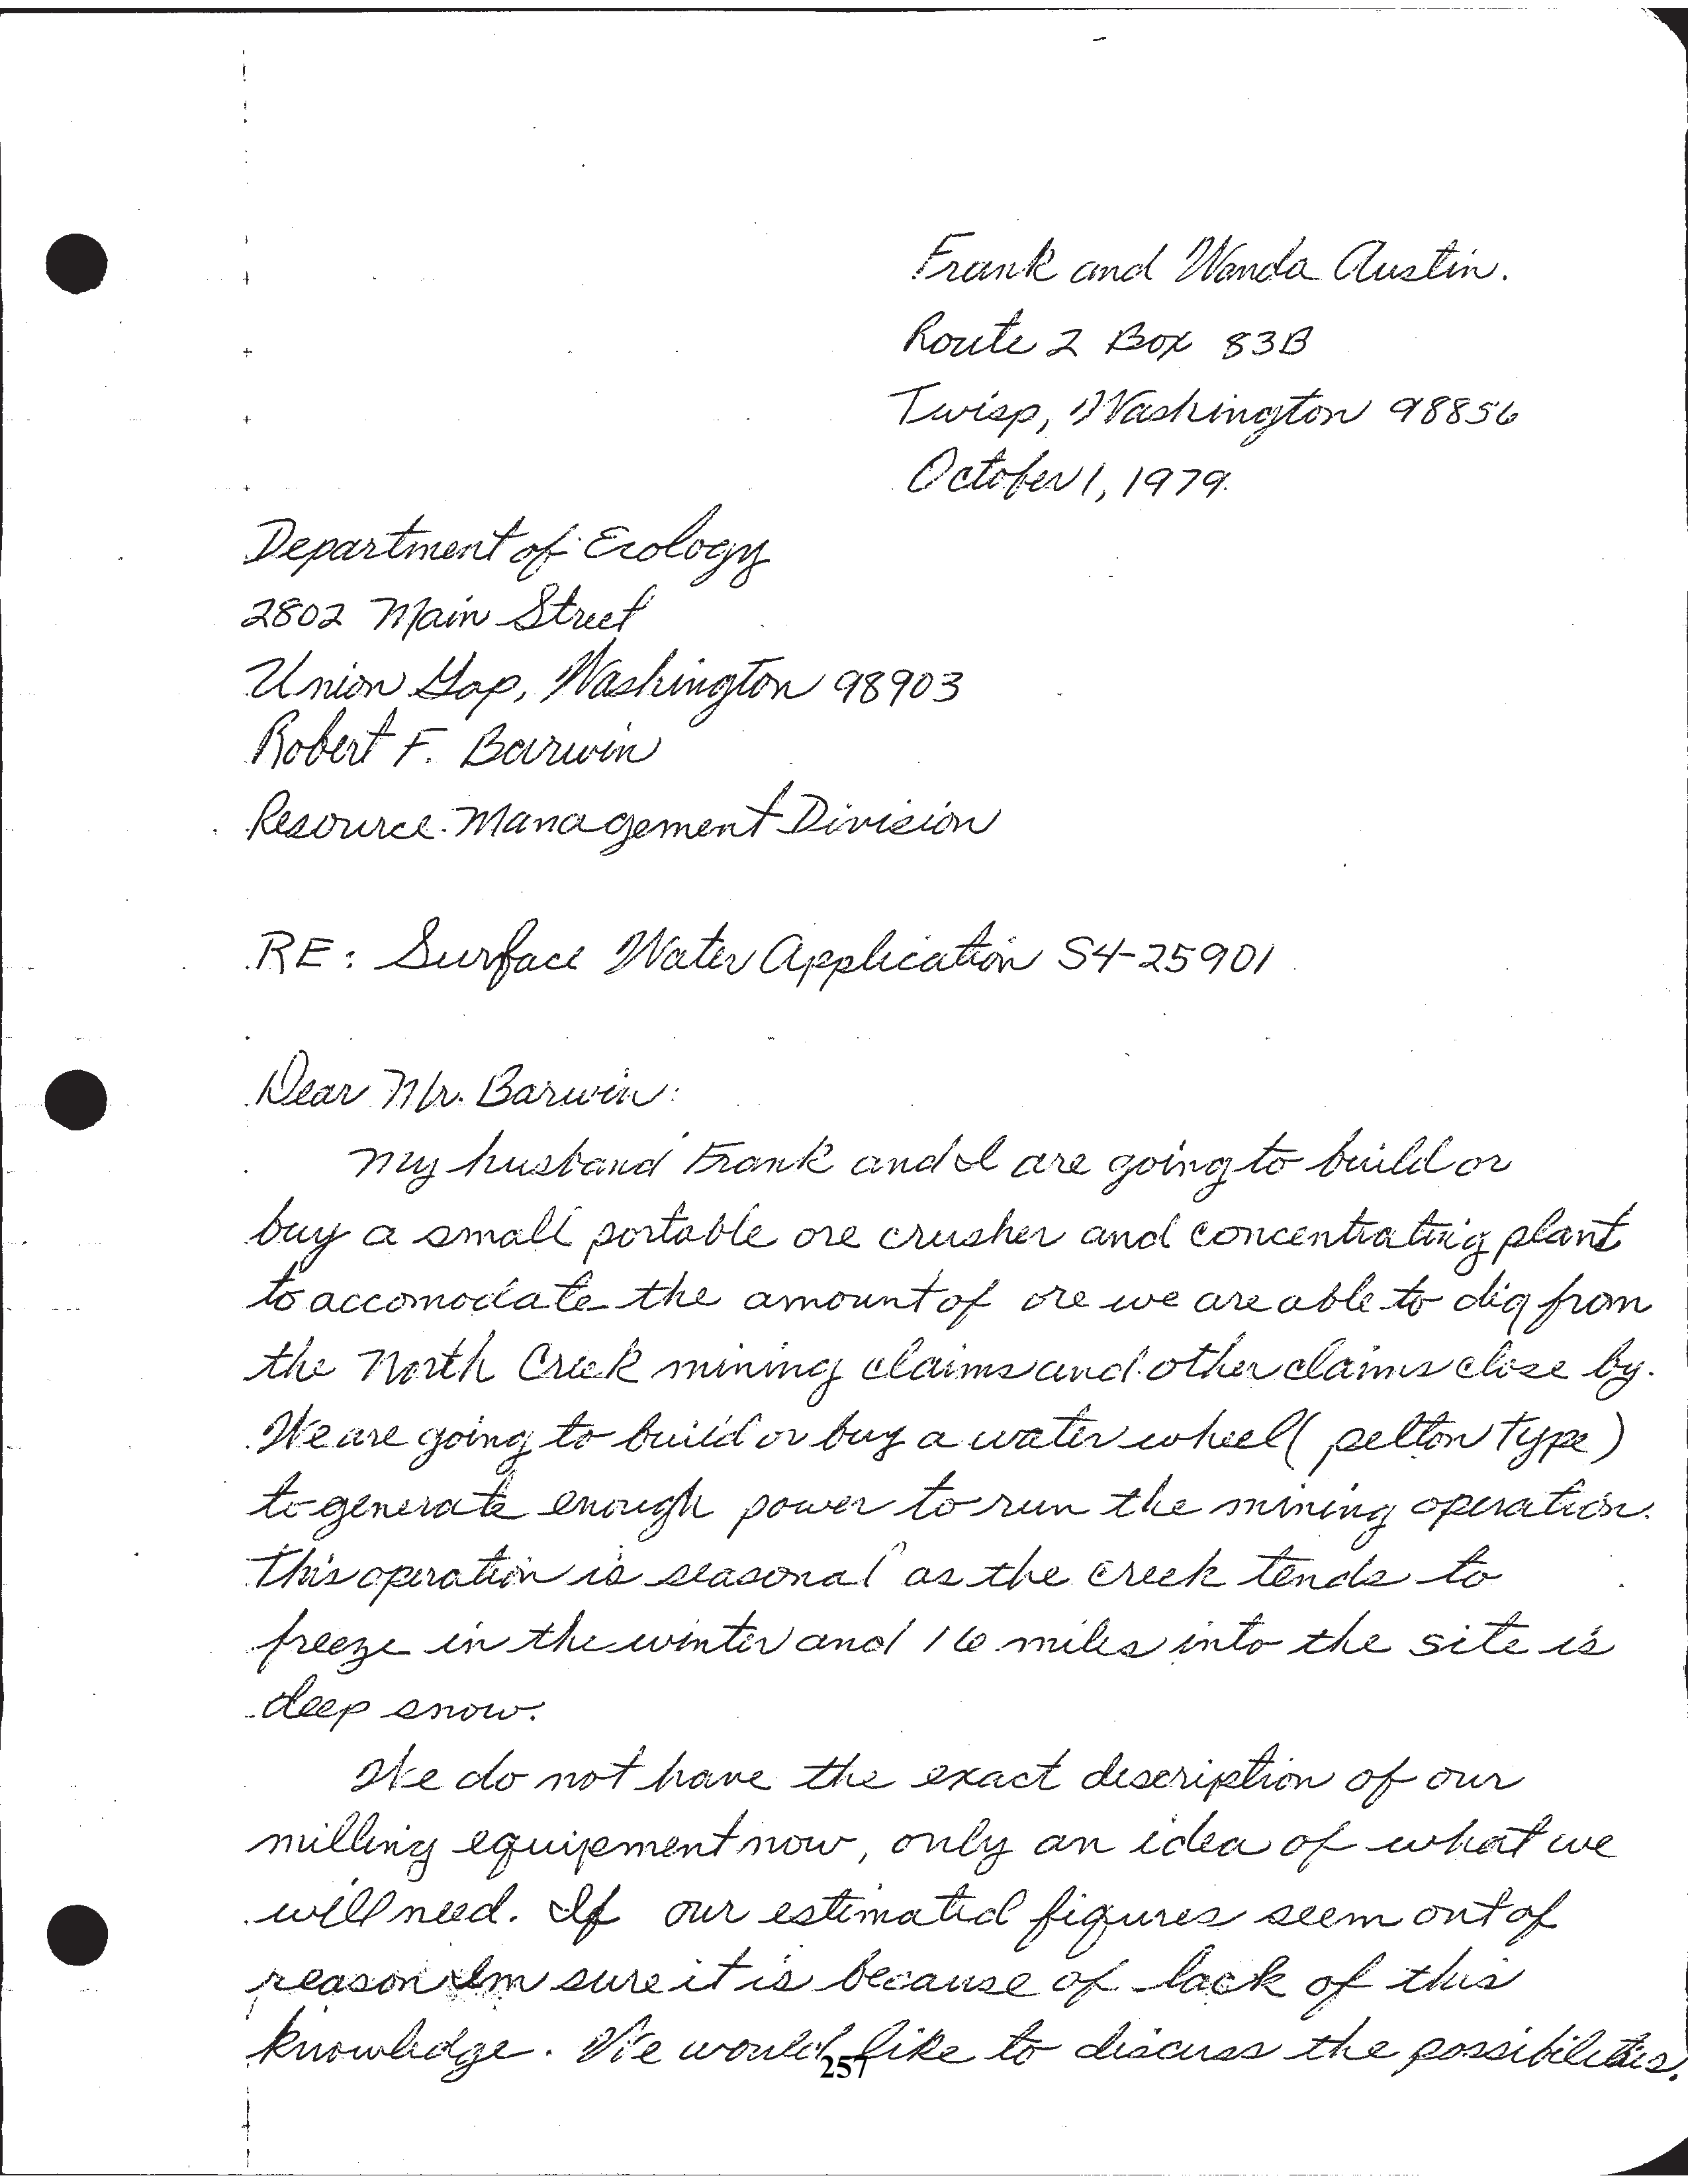 Frank and Wanda Austin.
Route 2 Box 83B
Twisp, Washington 98856
October 1, 1979.
Department of Ecology
2802 Main Street
Union Gap, Washington 98903
Robert F. Barwin
Resource Management Division
RE: Surface Water Application S4-25901
Dear Mr. Barwin:
My husband Frank and I are going to build or
buy a small portable ore crusher and concentrating plant
to accomodate the amount of ore we are able to dig from
the North Creek mining claims and other claims close by.
We are going to build or buy a water wheel (pelton type)
to generate enough power to run the mining operation.
This operation is seasonal as the creek tends to
freeze in the winter and 16 miles into the site is
deep snow.
We do not have the exact description of our
milling equipment now, only an idea of what we
will need. If our estimated figures seem out of
reason Im sure it is because of lack of this
knowledge. We would like to discuss the possibilities.
257